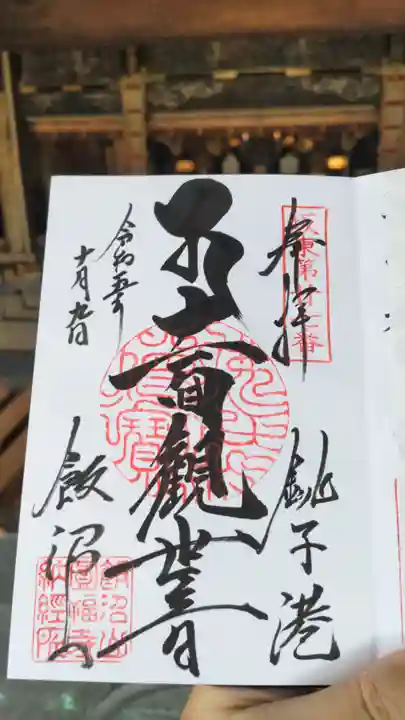 坂東第廿七番
奉拝
銚子港
十一面觀世音
令和五年
十月九日
飯沼山
飯沼山
圓福寺
納經所